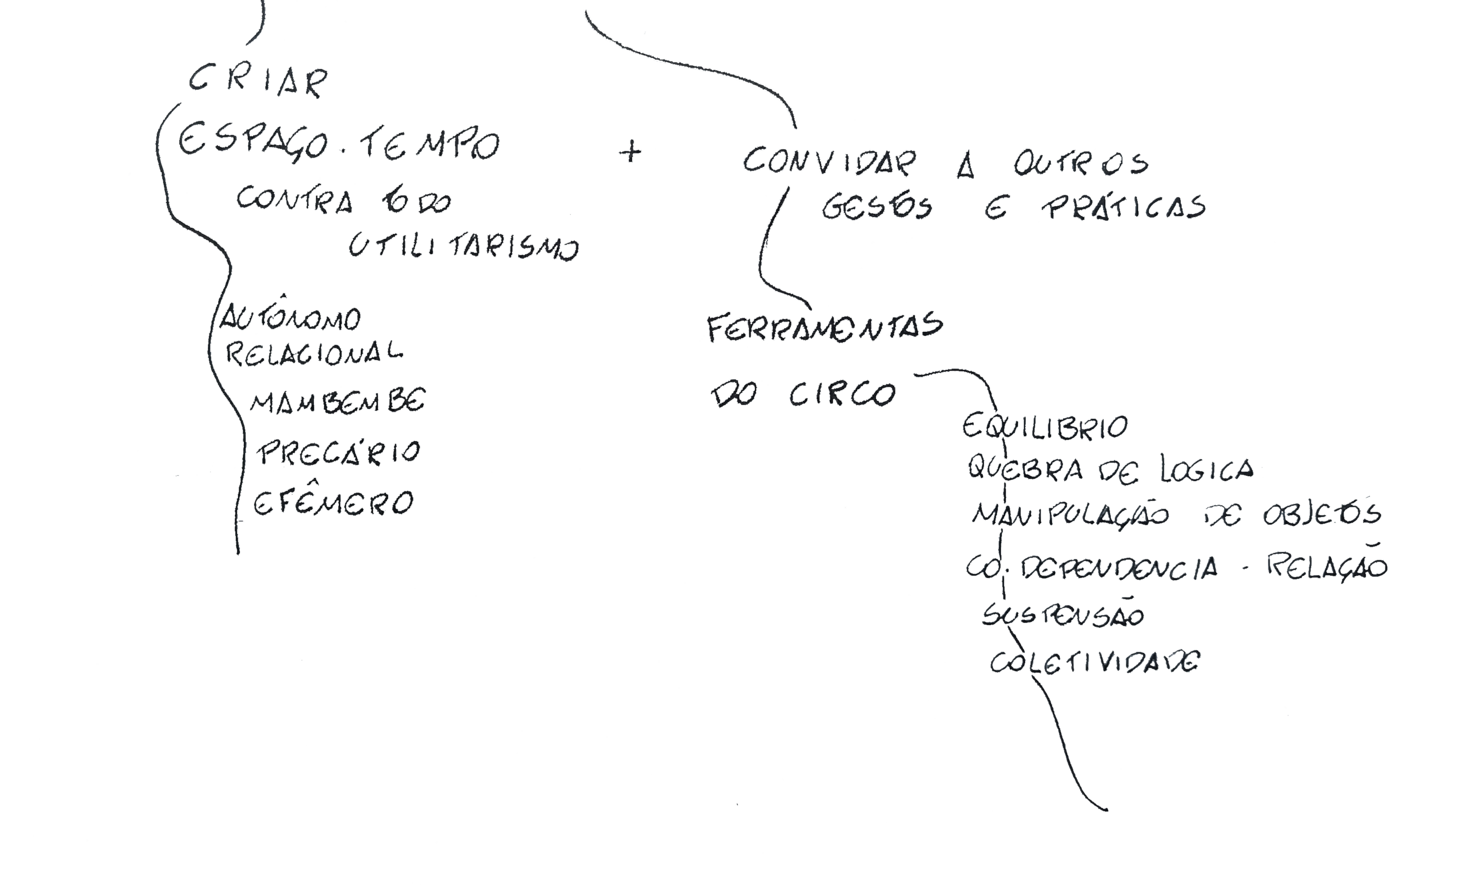 CRIAR
ESPAÇO.TEMPO
CONTRA TODO
UTILITARISMO
AUTÔNOMO
RELACIONAL
MAMBEMBE
PRECÁRIO
EFÊMERO
+
CONVIDAR A OUTROS
GESTOS E PRÁTICAS
FERRAMENTAS
DO CIRCO
EQUILIBRIO
QUEBRA DE LOGICA
MANIPULAÇÃO DE OBJETOS
CO.DEPENDENCIA - RELAÇÃO
SUSPENSÃO
COLETIVIDADE